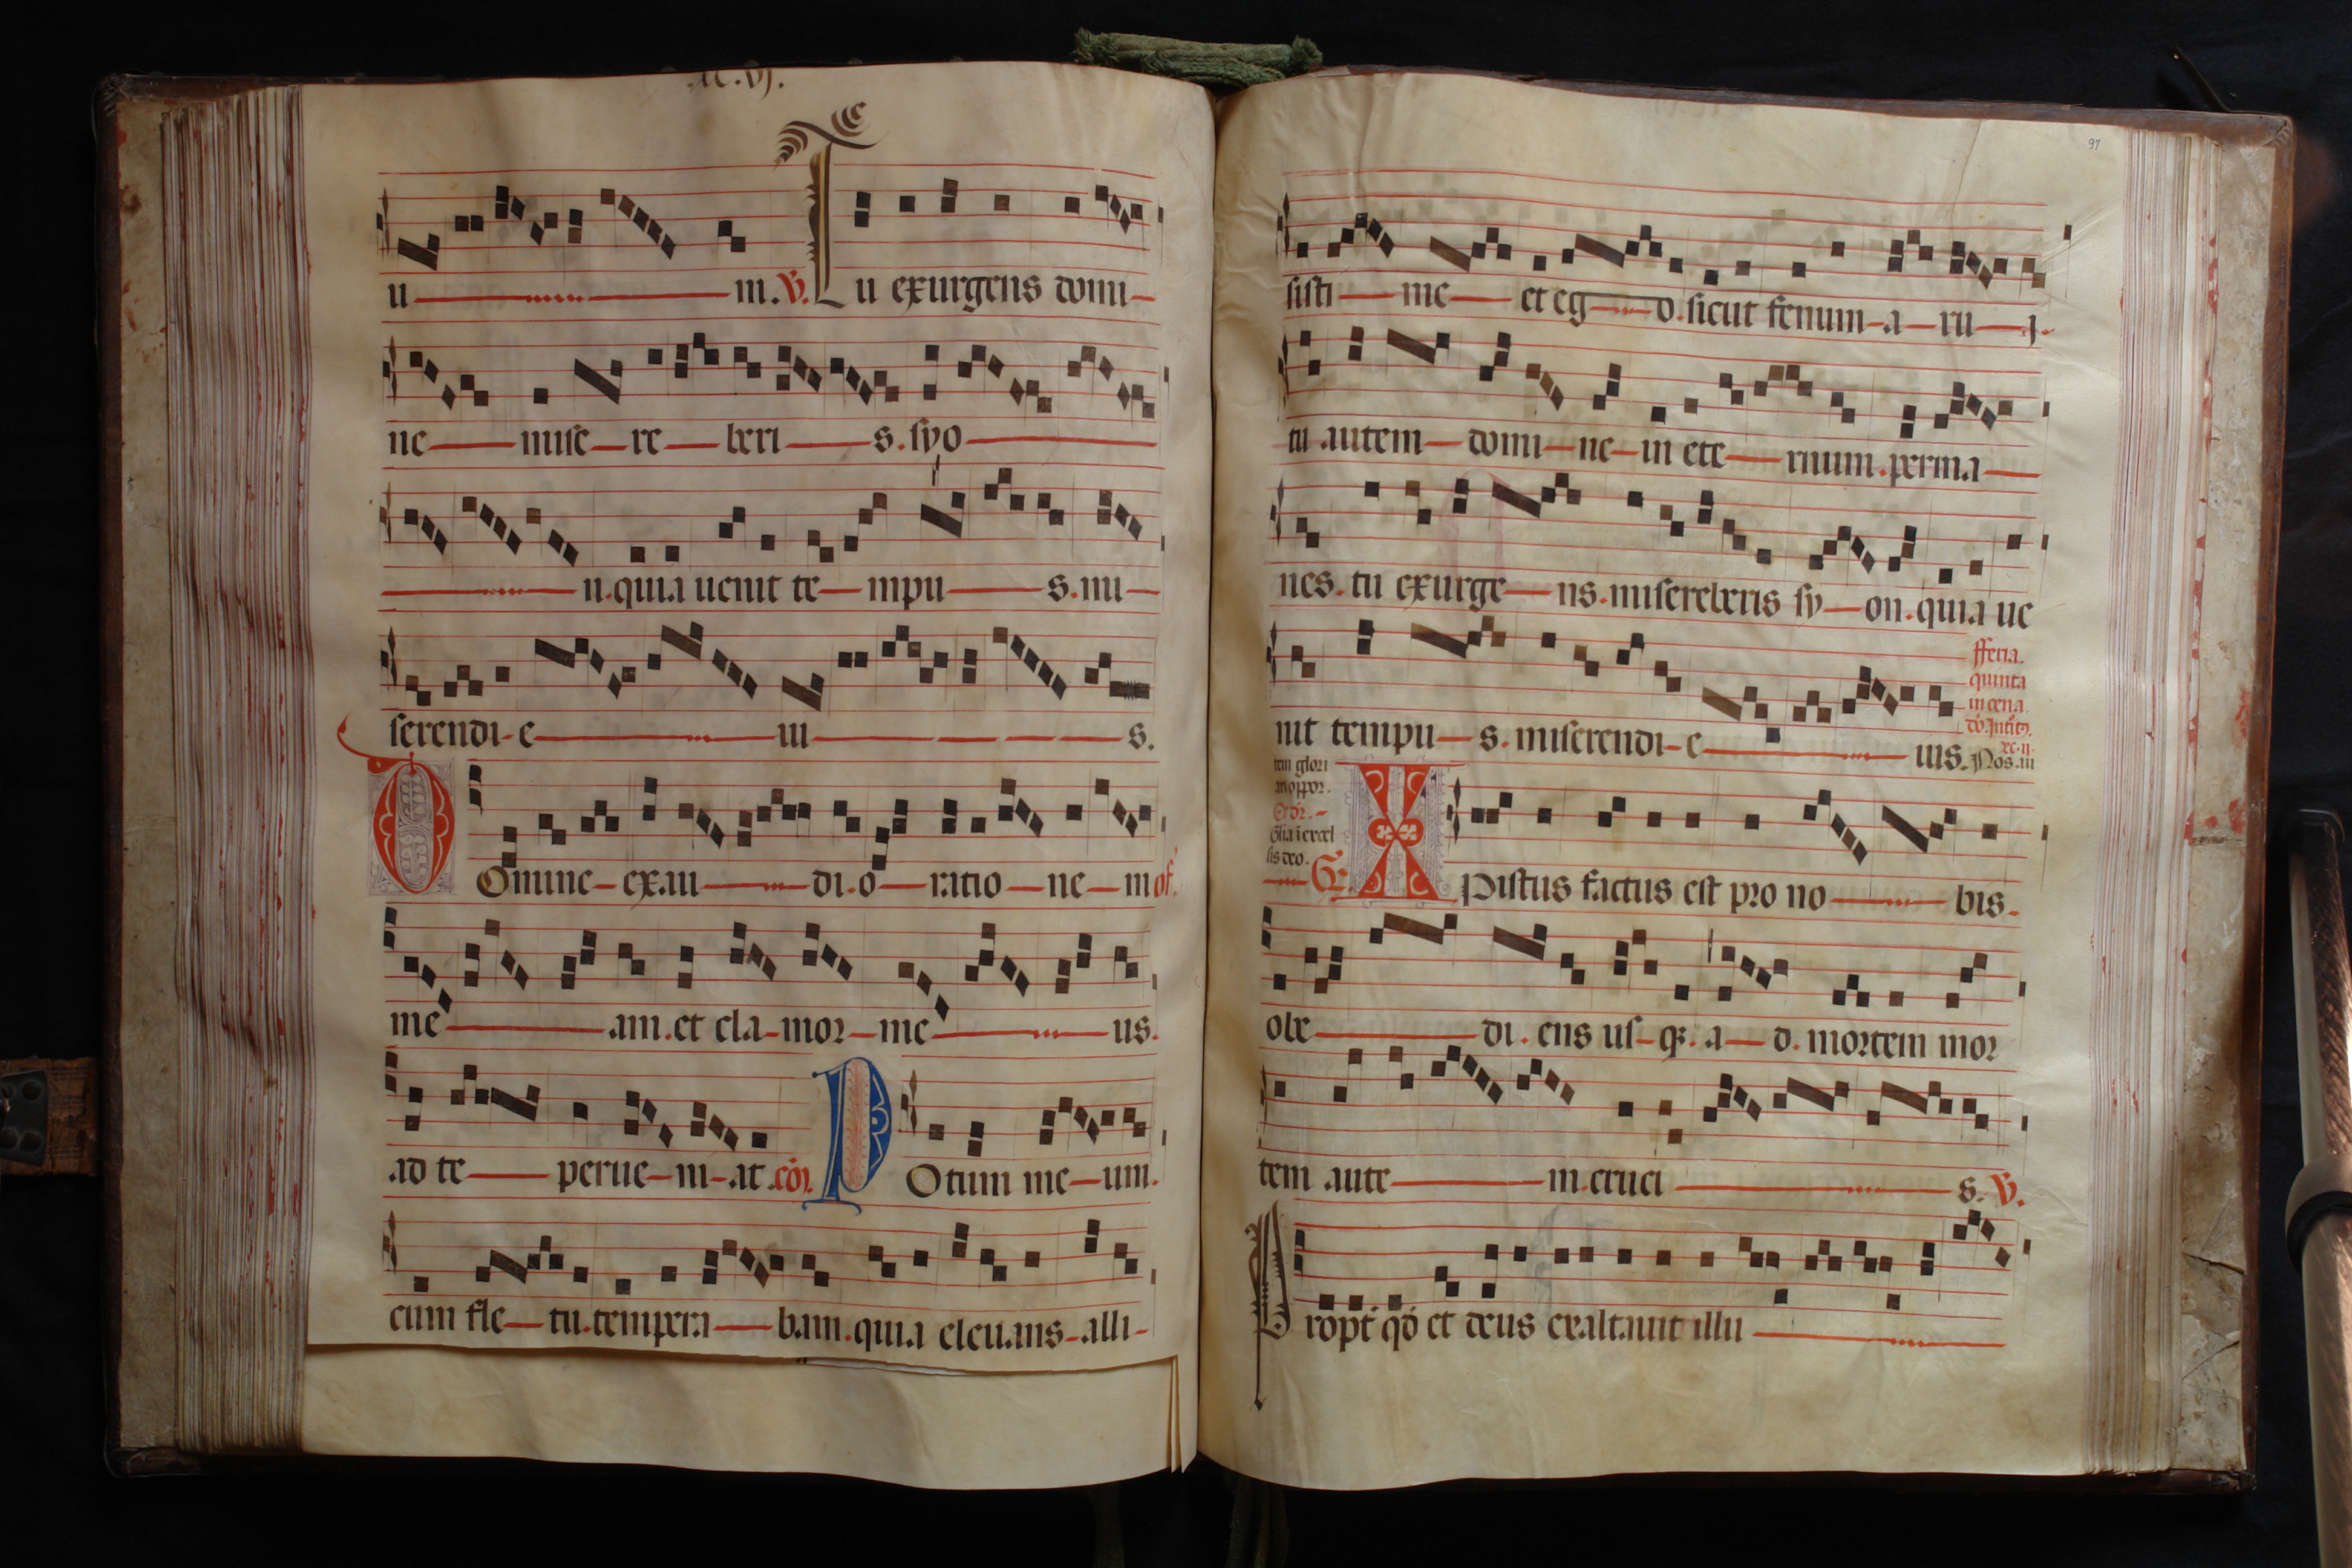 .xc.vj.
u m. V. Tu exurgens domi-
ne mise-re-beri-s. syo
n. quia uenit te-mpu-s. mi-
serendi-e iu s.
Domine-exau-di. o-ratio-ne-m of.
me-am. et cla-mor-me-us.
ad te perue-ni-at. cōi. Potum me-um.
cum fle-tu. tempera-bam. quia eleuans-alli-
97
sisti-me-et eg-o. sicut fenum-a-ru-i.
tu autem-domi-ne-in ete-rnum. perma-
nes. tu exurge-ns. misereberis sy-on. quia ue
nit tempu-s. miserendi-e ius.
fferia.
quinta
in cena.
Nos. au
tem glori
Glia i excel
sis deo.
Gr. Xpistus factus est pro no-bis.
obe-di. ens us-q3. a-d. mortem mor
tem aute-m. cruci-s. V.
Propt' qd' et deus exaltauit illu